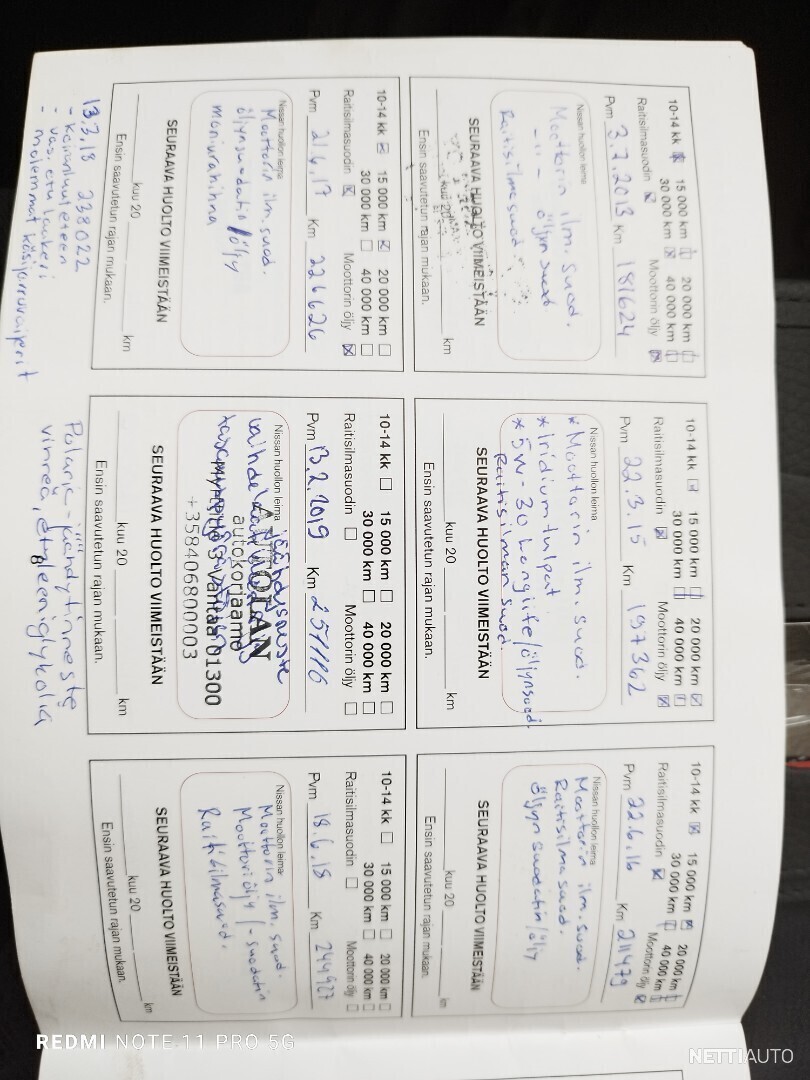 10-14 kk 15 000 km 20 000 km
30 000 km 40 000 km
Raitisilmasuodin Moottorin öljy
Pvm 3.7.2013 Km 181624
Nissan huollon leima
Moottorin ilm. suod.
-"- öljyn suod
Raitisilmasuod.
SEURAAVA HUOLTO VIIMEISTÄÄN
kuu 20 km
Ensin saavutetun rajan mukaan.
10-14 kk 15 000 km 20 000 km
30 000 km 40 000 km
Raitisilmasuodin Moottorin öljy
Pvm 22.3.15 Km 197362
Nissan huollon leima
* Moottorin ilm. suod.
* Iridiumtulpat
* 5W-30 Longlife/öljynsuod.
Raitisilman suod.
SEURAAVA HUOLTO VIIMEISTÄÄN
kuu 20 km
Ensin saavutetun rajan mukaan.
10-14 kk 15 000 km 20 000 km
30 000 km 40 000 km
Raitisilmasuodin Moottorin öljy
Pvm 22.6.16 Km 211479
Nissan huollon leima
Moottorin ilm. suod.
Raitisilmasuod.
Öljyn suodatin/öljy
SEURAAVA HUOLTO VIIMEISTÄÄN
kuu 20 km
Ensin saavutetun rajan mukaan.
10-14 kk 15 000 km 20 000 km
30 000 km 40 000 km
Raitisilmasuodin Moottorin öljy
Pvm 21.6.17 Km 226626
Nissan huollon leima
Moottorin ilm. suod.
öljynsuodatin/öljy
moniurahihna
SEURAAVA HUOLTO VIIMEISTÄÄN
kuu 20 km
Ensin saavutetun rajan mukaan.
13.3.18 238022
- vas. etu laakeri
- molemmat käsijarruvaijerit
10-14 kk 15 000 km 20 000 km
30 000 km 40 000 km
Raitisilmasuodin Moottorin öljy
Pvm 13.2.2019 Km 251116
Nissan huollon leima jäähdytysneste
ANTTOLAN
autokorjaamo
Vantaa 01300
+358406800003
SEURAAVA HUOLTO VIIMEISTÄÄN
kuu 20 km
Ensin saavutetun rajan mukaan.
Polaric-jäähdytinneste
vihreä, etyleeniglykolia
10-14 kk 15 000 km 20 000 km
30 000 km 40 000 km
Raitisilmasuodin Moottorin öljy
Pvm 18.6.18 Km 244927
Nissan huollon leima
Moottorin ilm. suod.
Moottoriöljy/-suodatin
Raitisilmasuod.
SEURAAVA HUOLTO VIIMEISTÄÄN
kuu 20 km
Ensin saavutetun rajan mukaan.
8
REDMI NOTE 11 PRO 5G
NETTIAUTO